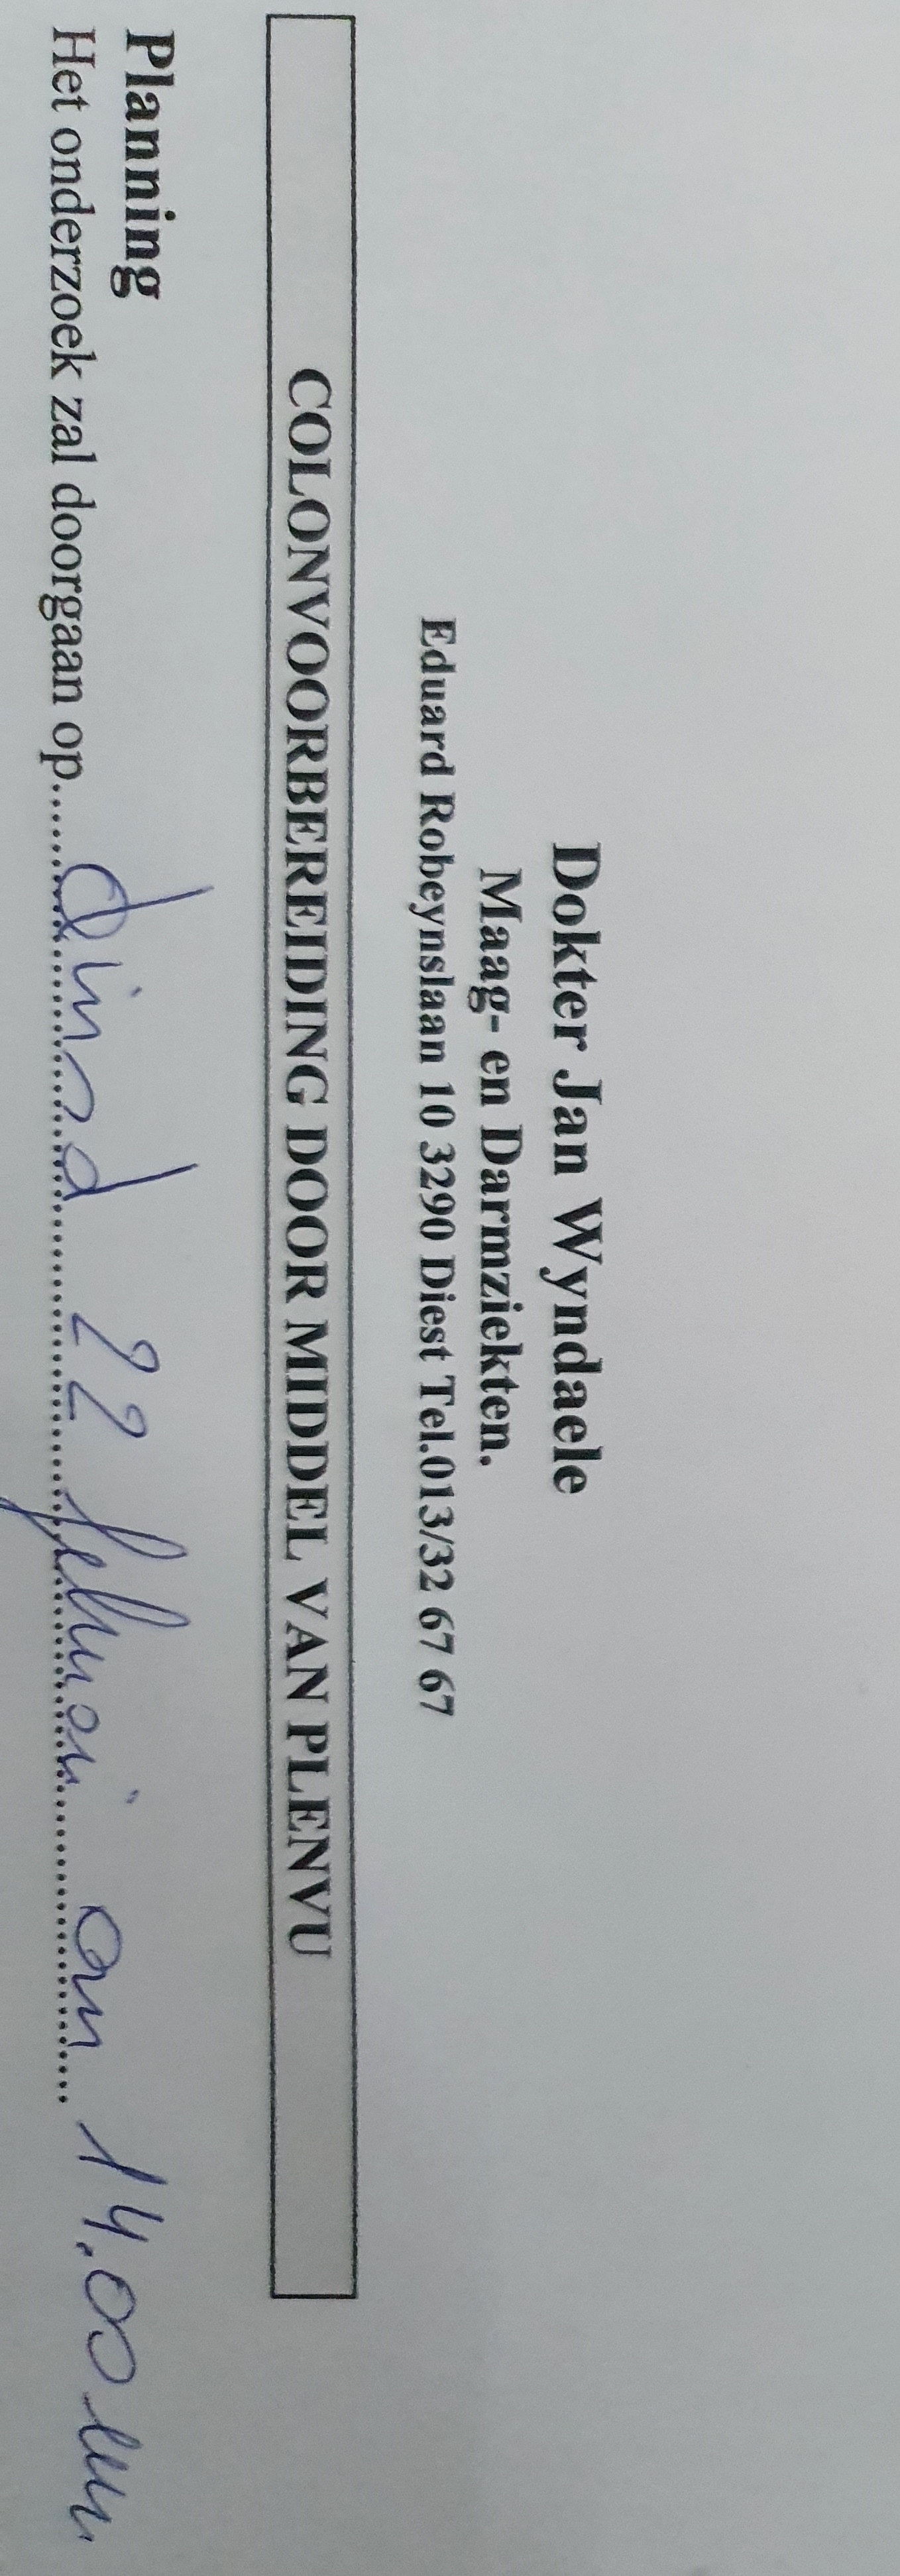 Dokter Jan Wyndaele
Maag- en Darmziekten.
Eduard Robeynslaan 10 3290 Diest Tel.013/32 67 67
COLONVOORBEREIDING DOOR MIDDEL VAN PLENVU
Planning
Het onderzoek zal doorgaan op.....dinsd 22 februari om 14.00 uur